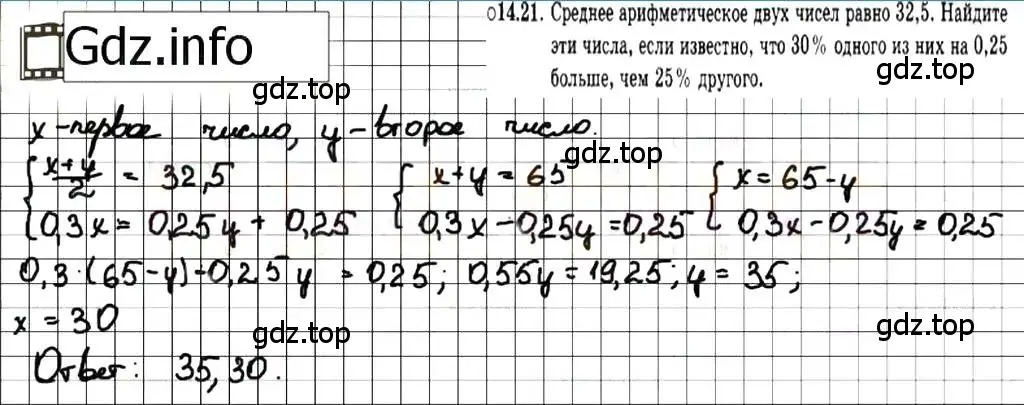 Gdz.info
gdz.top
014.21. Среднее арифметическое двух чисел равно 32,5. Найдите
эти числа, если известно, что 30% одного из них на 0,25
больше, чем 25% другого.
x - первое число, y - второе число.
gdz.top
{ (x+y)/2 = 32,5 { x+y = 65 { x = 65-y
{ 0,3x = 0,25y + 0,25 { 0,3x - 0,25y = 0,25 { 0,3x - 0,25y = 0,25
0,3·(65-y) - 0,25y = 0,25; 0,55y = 19,25; y = 35;
gdz.top
x = 30
gdz.top
gdz.top
Ответ: 35, 30.